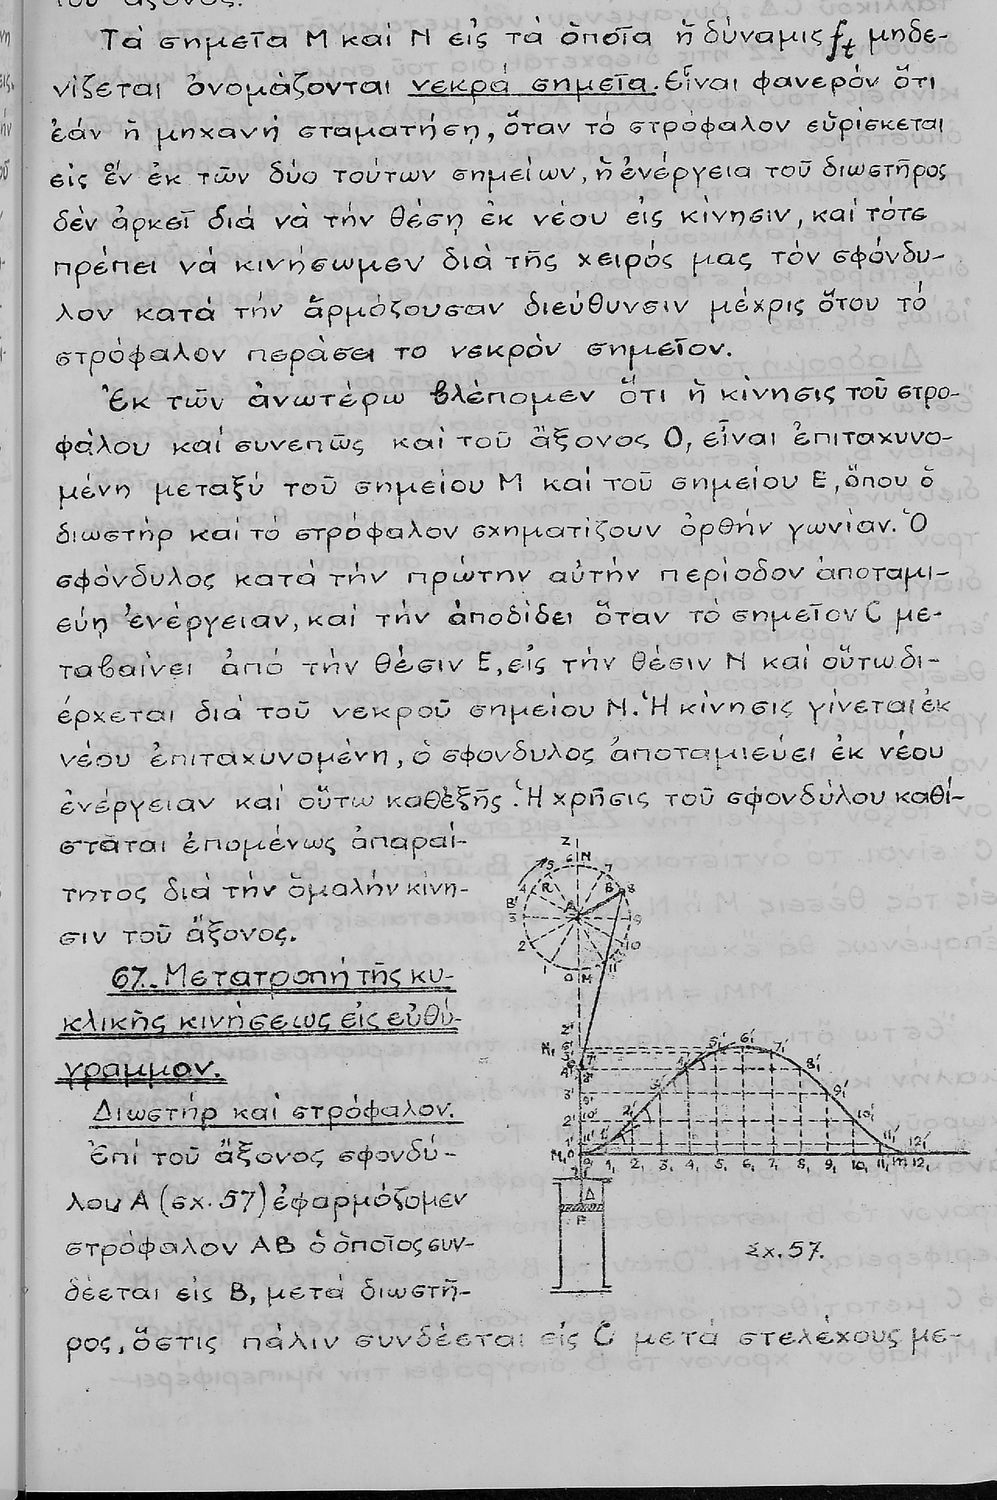 τοῦ ἄξονος.
Τὰ σημεῖα Μ καί Ν εἰς τὰ ὁποῖα ἡ δύναμις ft μηδε-
νίζεται ὀνομάζονται νεκρά σημεῖα. Εἶναι φανερόν ὅτι
ἐάν ἡ μηχανή σταματήσῃ, ὅταν τό στρόφαλον εὑρίσκεται
εἰς ἕν ἐκ τῶν δύο τούτων σημείων, ἡ ἐνέργεια τοῦ διωστῆρος
δὲν ἀρκεῖ διά νὰ τήν θέσῃ ἐκ νέου εἰς κίνησιν, καί τότε
πρέπει νά κινήσωμεν διὰ τῆς χειρός μας τόν σφόνδυ-
λον κατά τήν ἁρμόζουσαν διεύθυνσιν μέχρις ὅτου τό
στρόφαλον περάσει το νεκρὸν σημεῖον.
Ἐκ τῶν ἀνωτέρω βλέπομεν ὅτι ἡ κίνησις τοῦ στρο-
φάλου καί συνεπῶς καί τοῦ ἄξονος Ο, εἶναι ἐπιταχυνο-
μένη μεταξύ τοῦ σημείου Μ καί τοῦ σημείου Ε, ὅπου ὁ
διωστήρ καί τό στρόφαλον σχηματίζουν ὀρθήν γωνίαν. Ὁ
σφόνδυλος κατά τήν πρώτην αὐτήν περίοδον ἀποταμι-
εύῃ ἐνέργειαν, καί τήν ἀποδίδει ὅταν τό σημεῖον C με-
ταβαίνει ἀπό τήν θέσιν Ε, εἰς τήν θέσιν Ν καί οὕτω δι-
έρχεται διά τοῦ νεκροῦ σημείου Ν. Ἡ κίνησις γίνεται ἐκ
νέου ἐπιταχυνομένη, ὁ σφονδυλος ἀποταμιεύει ἐκ νέου
ἐνέργειαν καί οὕτω καθἑξῆς. Ἡ χρῆσις τοῦ σφονδύλου καθί-
σταται ἑπομένως ἀπαραί-
τητος διά τήν ὁμαλήν κίνη-
σιν τοῦ ἄξονος.
67.- Μετατροπή τῆς κυ-
κλικῆς κινήσεως εἰς εὐθύ-
γραμμον.
Διωστήρ καί στρόφαλον.
Ἐπί τοῦ ἄξονος σφονδύ-
λου Α (σχ. 57) ἐφαρμόζομεν
στρόφαλον ΑΒ ὁ ὁποῖος συν-
δέεται εἰς Β, μετά διωστῆ-
ρος, ὅστις πάλιν συνδέεται εἰς C μετά στελέχους με-
Z
6 N
5 7
4 R B 8
B'
3 A 9
2 10
1 11
0 M
5'₁ 6'₁ 7'₁
8'₁
9'₁
10'₁
11'₁ 12'₁
1₁ 2₁ 3₁ 4₁ 5₁ 6₁ 7₁ 8₁ 9₁ 10₁ 11₁ m 12₁
Δ
F
Σχ. 57.